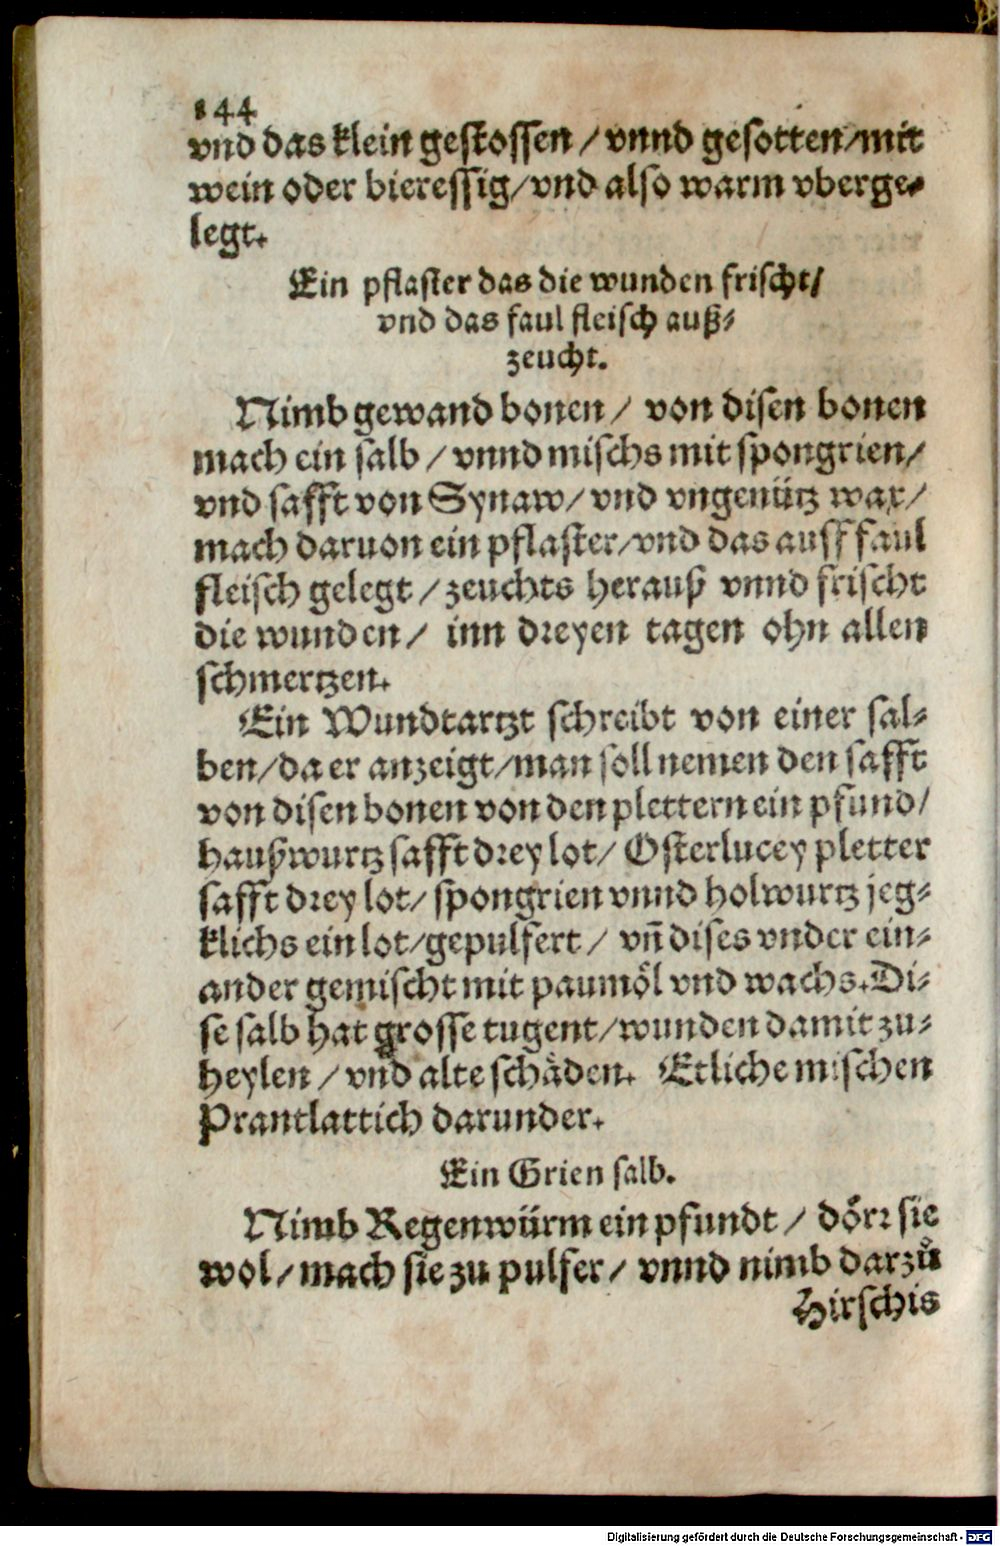 144
vnd das klein gestossen / vnnd gesotten/mit
wein oder bieressig/vnd also warm vberge⸗
legt.
Ein pflaster das die wunden frischt/
vnd das faul fleisch auß⸗
zeucht.
Nimb gewand bonen / von disen bonen
mach ein salb / vnnd mischs mit spongrien/
vnd safft von Synaw/ vnd vngenütz wax/
mach daruon ein pflaster/vnd das auff faul
fleisch gelegt / zeuchts herauß vnnd frischt
die wunden / inn dreyen tagen ohn allen
schmertzen.
Ein Wundtartzt schreibt von einer sal⸗
ben/da er anzeigt/man soll nemen den safft
von disen bonen von den plettern ein pfund/
haußwurtz safft drey lot/ Osterlucey pletter
safft drey lot/ spongrien vnnd holwurtz jeg⸗
klichs ein lot/gepulfert / vñ dises vnder ein⸗
ander gemischt mit paumöl vnd wachs. Di⸗
se salb hat grosse tugent/wunden damit zu⸗
heylen / vnd alte schäden. Etliche mischen
Prantlattich darunder.
Ein Grien salb.
Nimb Regenwürm ein pfundt / dörr sie
wol/ mach sie zu pulfer/ vnnd nimb darzů
Hirschis
Digitalisierung gefördert durch die Deutsche Forschungsgemeinschaft - DFG